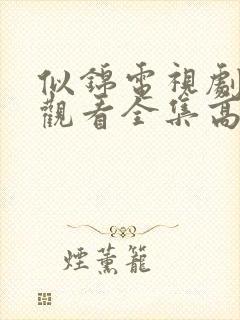 似錦電視劇
觀看全集高
煙薰籠